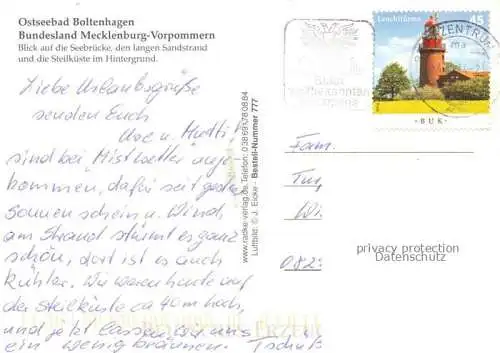 Ostseebad Boltenhagen
Bundesland Mecklenburg-Vorpommern
Blick auf die Seebrücke, den langen Sandstrand
und die Steilküste im Hintergrund.
Liebe Urlaubsgrüße
senden Euch
Uwe u. Mutti,
sind bei Mistwetter ange-
kommen, dafür seit gestern
Sonnenschein u. Wind,
am Strand stürmt es ganz
schön, dort ist es auch
kühler. Wir waren heute auf
der Steilküste ca 40 m hoch,
und jetzt lassen wir uns
ein wenig bräunen. Tschüß
www.radke-verlag.de, Telefon: 03869/780884
Luftbild: © J. Eicke - Bestell-Nummer 777
Leuchttürme
45
BUK
ZENTRUM
Fam.
privacy protection
Datenschutz